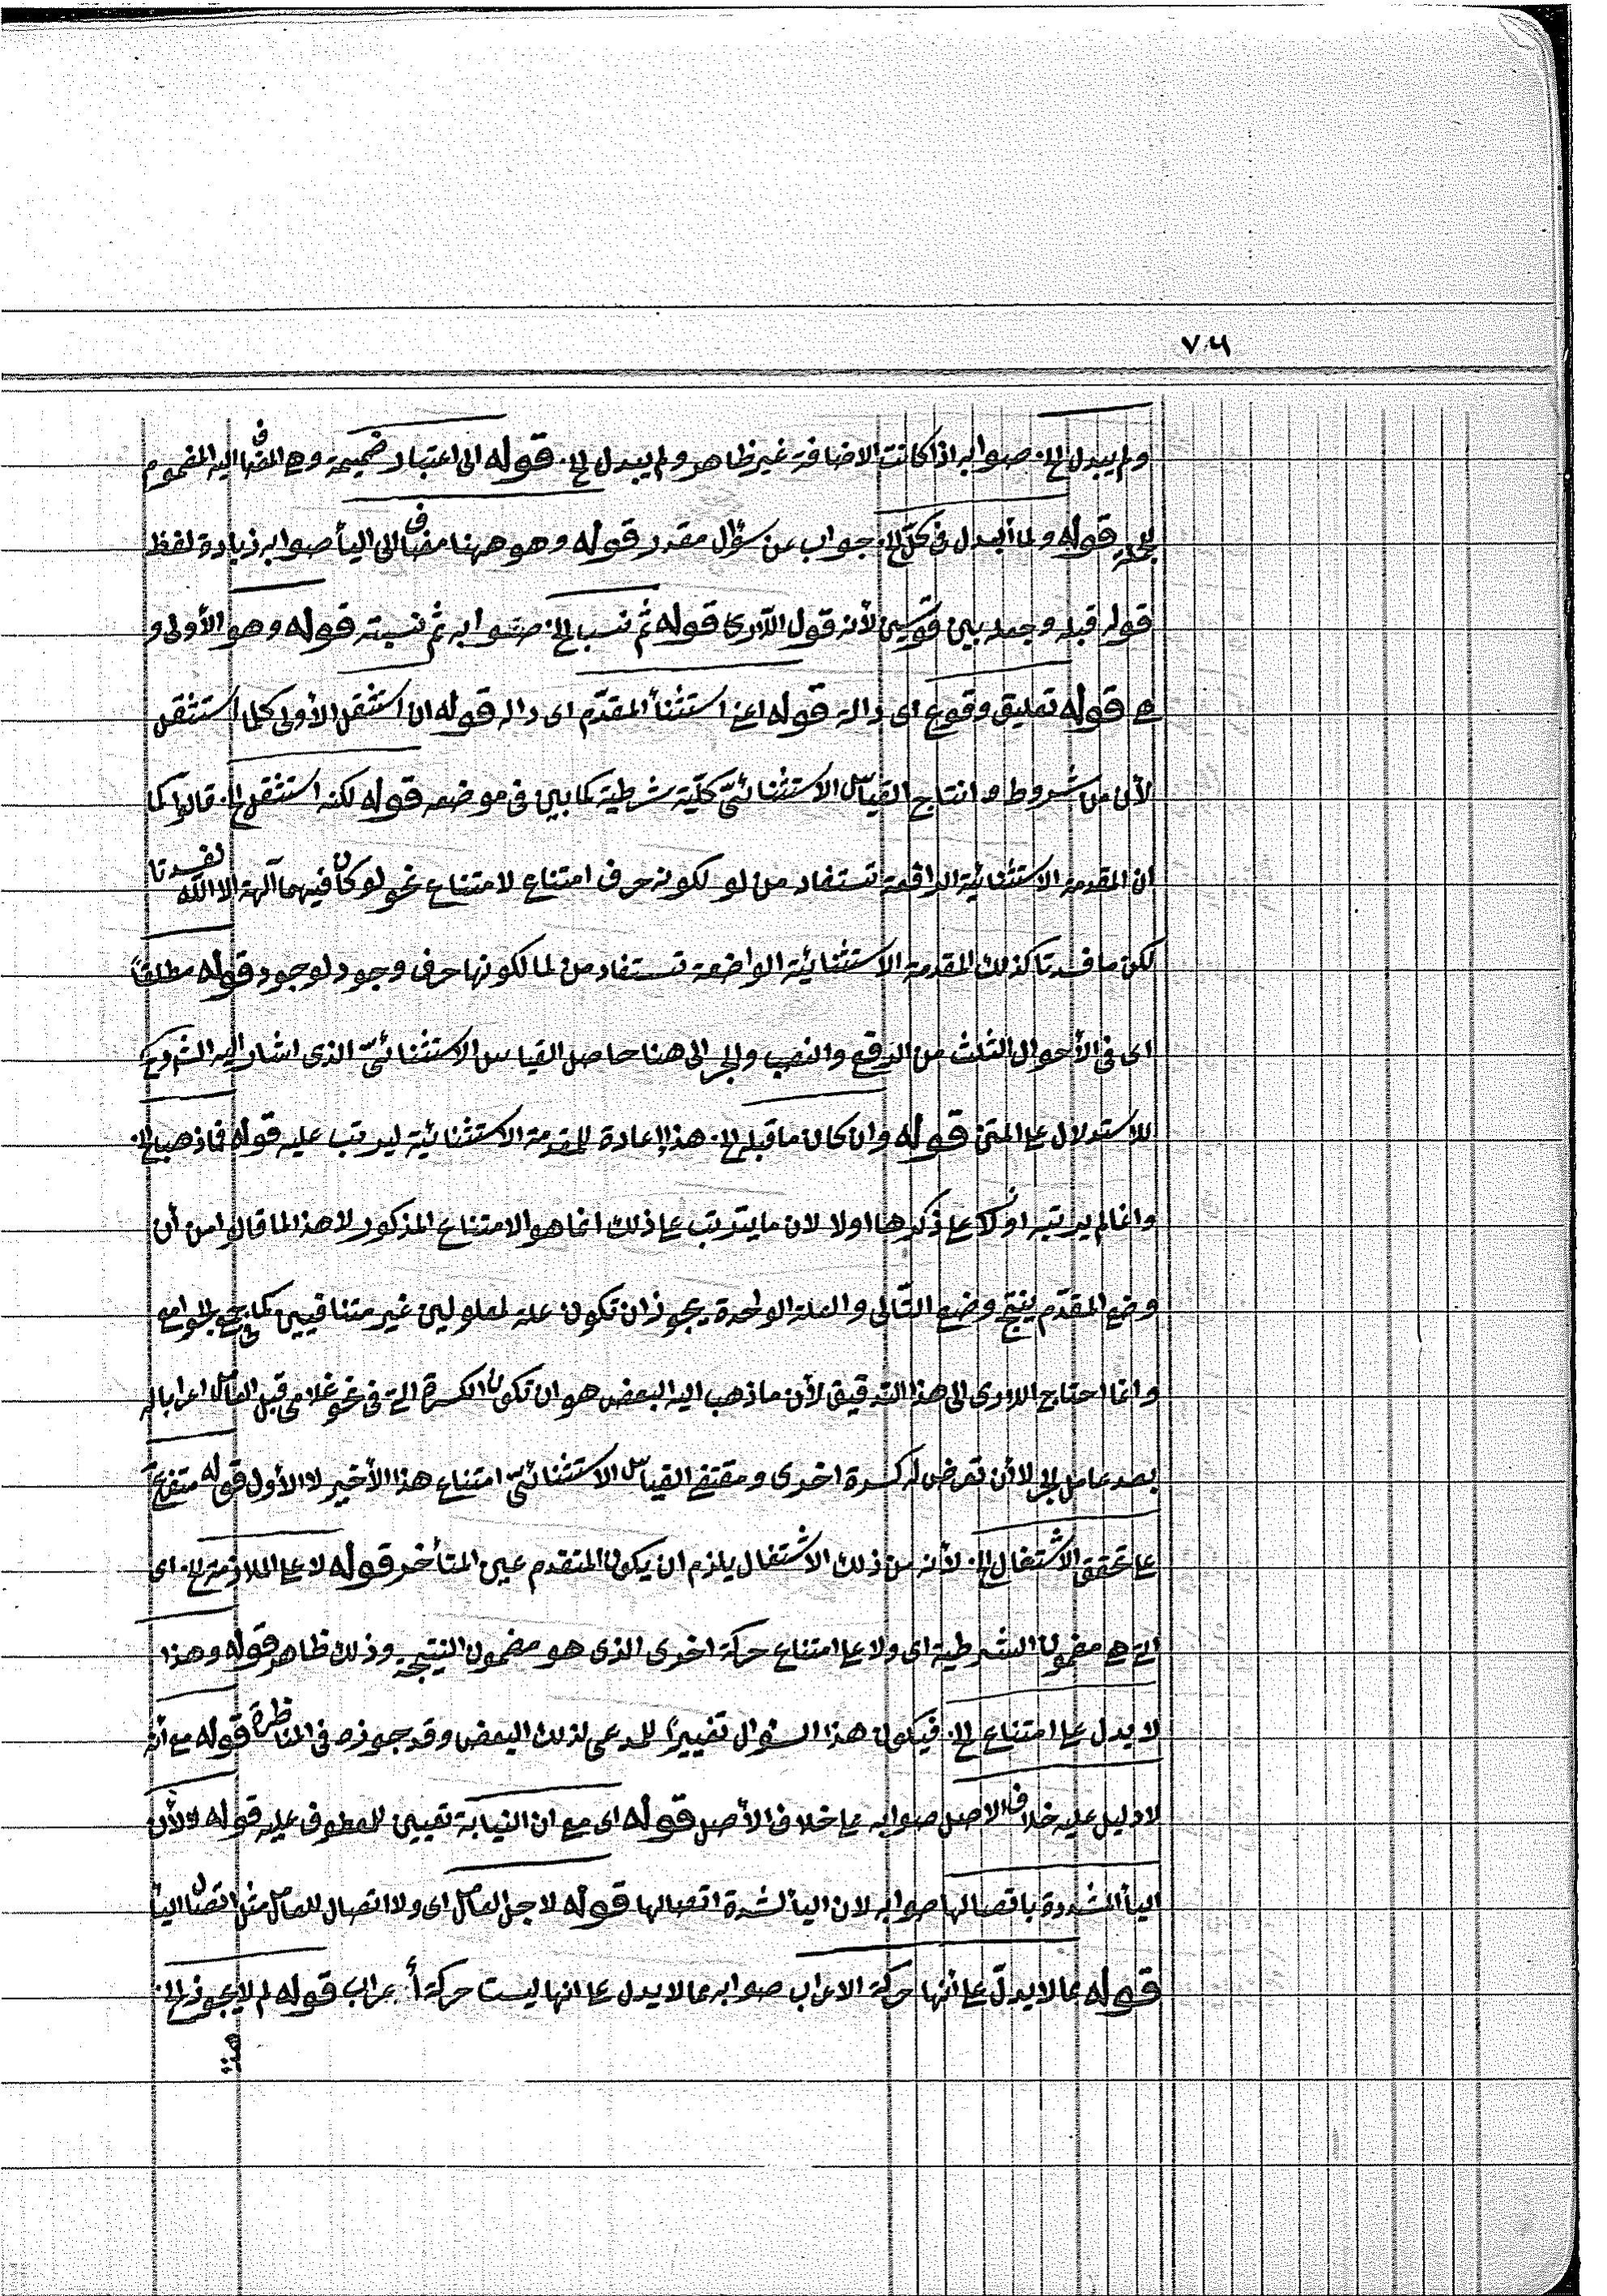 ٧٦
ولم يبدل الخ صوابه اذا كانت الاضافة غير ظاهر ولم يبدل الخ قوله الى اعتبار ضميمة وهى المضاف اليه المضموم
للجر قوله ولما أبدل فى كل الخ جواب عن سؤال مقدر قوله وهو ههنا مضاف الى اليأ صوابه زيادة لفظ
قوله قبله وجعله بين قوسين لأنه قول اللارى قوله ثم نسب الخ صوابه ثم نسبته قوله وهو الأولى و
هى قوله تعليق وقوع اى دالة قوله اعنى استثنأ المقدّم اى دالة قوله ان استثقل الأولى كلما استثقل
لأن من شروط انتاج القياس الاستثنائىّ كلّيّة شرطيّة كما بين فى موضعه قوله لكنه استثقل الخ قالوا كما
ان المقدمة الاستثنائية الرافعة تستفاد من لو لكونه حرف امتناع لامتناع نحو لو كان فيهما آلهة الا الله لفسدتا
لكن ما فسدتا كذلك المقدمة الاستثنائية الواضعة تستفاد من لما لكونها حرفى وجود لوجود قوله مطلقاً
اى فى الأحوال الثلث من الرفع والنصب والجر الى هنا حاصل القياس الاستثنائىّ الذى اشار اليه الشروع
للاستدلال على المتن قوله وان كان ما قبله الخ هذا اعادة للمقدمة الاستثنائية ليرتب عليه قوله فما ذهب الخ
وانما لم يرتبه اوّلاً على ذكرها اولا لان ما يترتب على ذلك انما هو الامتناع المذكور لا هذا لما قالوا من أن
وضع المقدّم ينتج وضع التّالى والعلة الواحدة يجوز ان تكون علة لمعلولين غير متنافيين كما فى جمع الجوامع
وانما احتاج اللارى الى هذا التدقيق لأن ما ذهب اليه البعض هو ان تكون الكسرة التى فى نحو غلامى قبل العامل اعرابا له
بعد عامل الجر لا أن تعرض له كسرة اخرى ومقتضى القياس الاستثنائىّ امتناع هذا الأخير لا الأول قوله متفرع
على تحقق الاشتغال الخ لأنه من ذلك الاشتغال يلزم ان يكون المتقدم عين المتأخر قوله لا على الملازمة الخ اى
التى هى مضمون الشرطية اى ولا على امتناع حركة اخرى الذى هو مضمون النتيجة وذلك ظاهر قوله وهذا
لا يدل على امتناع الخ فيكون هذا السؤال تغييرا للمدعى لذلك البعض وقد جوزه فى المناظرة قوله مع أنه
لا دليل عليه خلاف الاصل صوابه على خلاف الأصل قوله اى مع ان النيابة تعيين للمعطوف عليه قوله ولأن
اليأ المشددة باقصالها صوابه لان اليأ لشدة اتصالها قوله لاجل العامل اى ولا اتصال للعامل مثل اتصال اليأ
قوله مما لا يدلّ على أنها حركة الاعراب صوابه مما لا يدل على انها ليست حركة أعراب قوله لم لا يجوز الخ